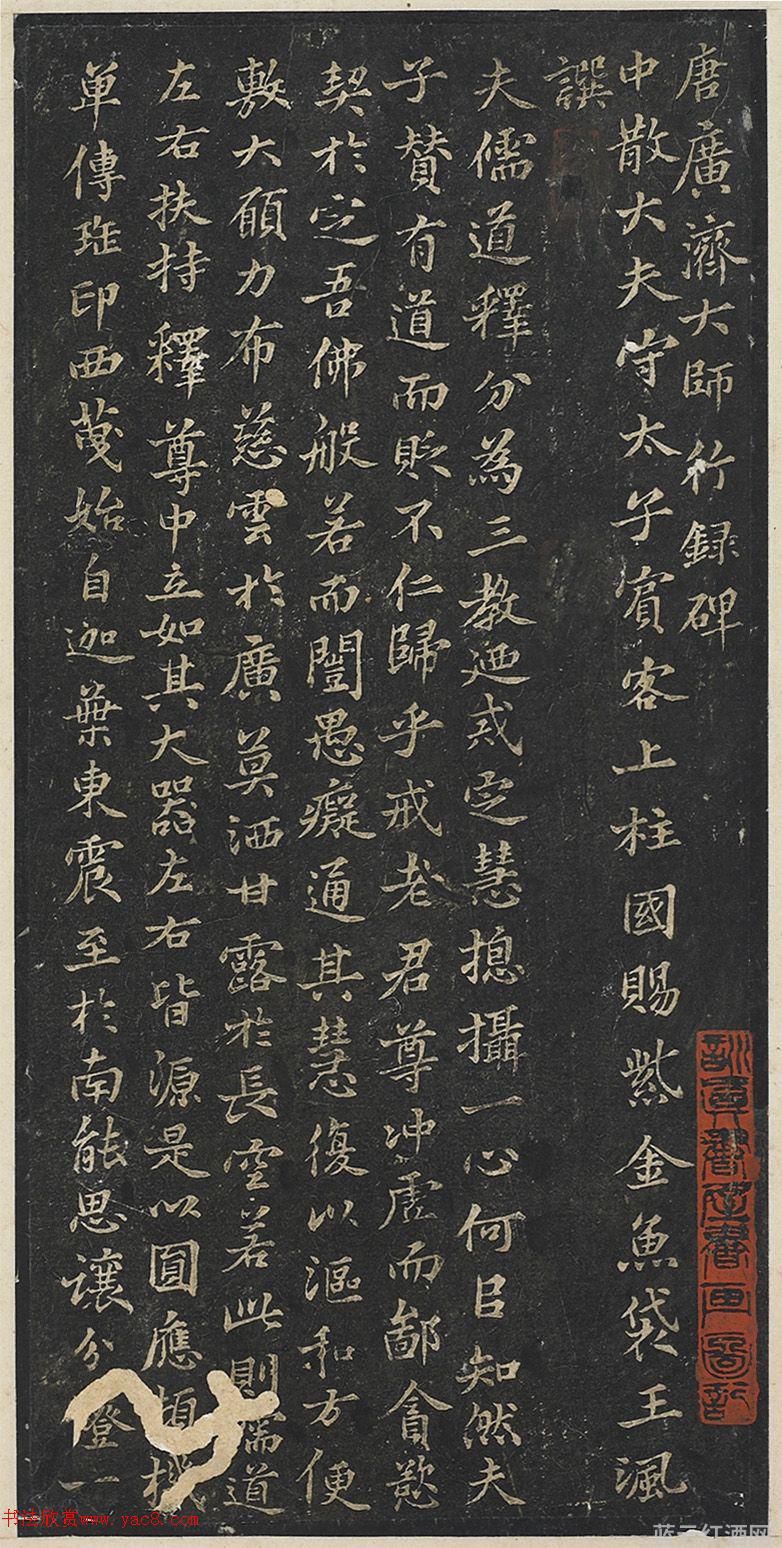 唐廣濟大師行録碑
中散大夫守太子賓客上柱國賜紫金魚袋王渢
譔
夫儒道釋分為三教廼戒定慧揔攝一心何㠯知然夫
子賛有道而貶不仁歸乎戒老君尊冲虛而鄙貪慾
契於定吾佛般若而闓愚癡通其慧復以漚和方便
敷大願力布慈雲於廣莫洒甘露於長空若此則儒道
左右扶持釋尊中立如其大器左右皆源是以圓應頓機
單傳班印西茂始自迦葉東震至於南能思讓分燈一
書法欣赏www.yac8.com
蓝云红酒网